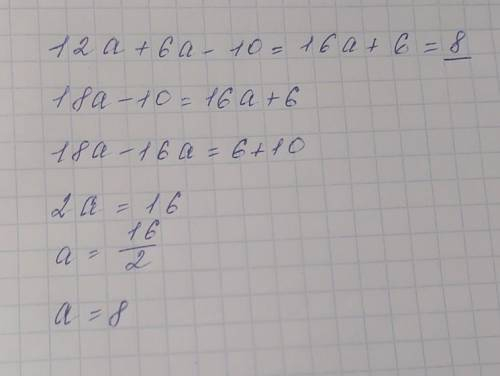 12a + 6a - 10 = 16a + 6 = 8
18a - 10 = 16a + 6
18a - 16a = 6 + 10
2a = 16
a = 16/2
a = 8